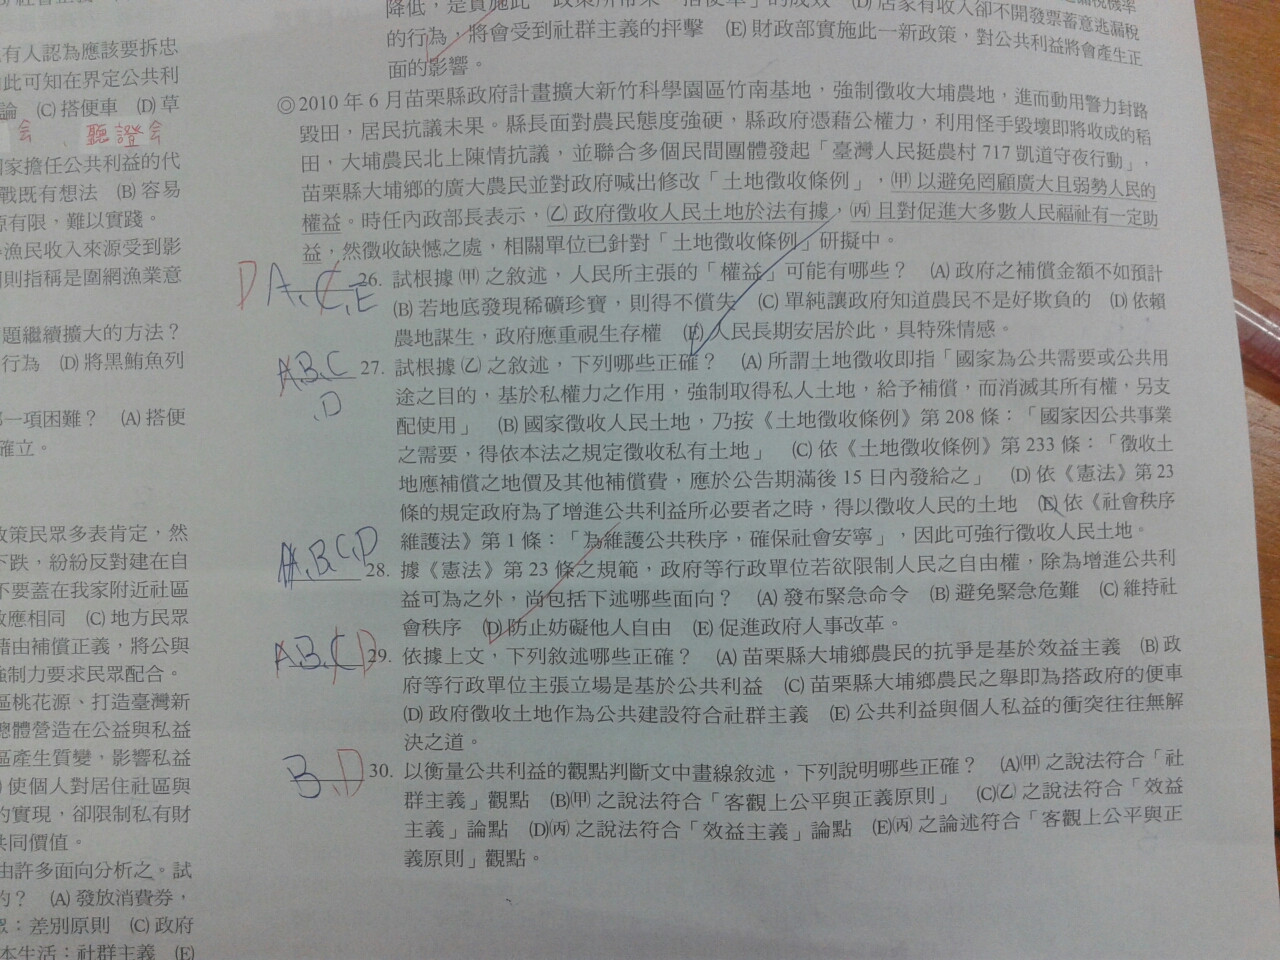 有人認為應該要拆忠
此可知在界定公共利
論 (C)搭便車 (D)草
會、聽證會
國家擔任公共利益的代
戰既有想法 (B)容易
源有限，難以實踐。
漁民收入來源受到影
則指稱是圍網漁業意
題繼續擴大的方法？
行為 (D)將黑鮪魚列
一項困難？ (A)搭便
確立。
政策民眾多表肯定，然
下跌，紛紛反對建在自
不要蓋在我家附近社區
效應相同 (C)地方民眾
藉由補償正義，將公與
強制力要求民眾配合。
區桃花源、打造臺灣新
總體營造在公益與私益
區產生質變，影響私益
使個人對居住社區與
的實現，卻限制私有財
共同價值。
由許多面向分析之。試
的？ (A)發放消費券，
眾：差別原則 (C)政府
本生活：社群主義 (E)
降低，是實施此一政策所帶來「搭便車」的成效 (D)店家有收入卻不開發票蓄意逃漏稅
的行為，將會受到社群主義的抨擊 (E)財政部實施此一新政策，對公共利益將會產生正
面的影響。
◎2010 年 6 月苗栗縣政府計畫擴大新竹科學園區竹南基地，強制徵收大埔農地，進而動用警力封路
毀田，居民抗議未果。縣長面對農民態度強硬，縣政府憑藉公權力，利用怪手毀壞即將收成的稻
田，大埔農民北上陳情抗議，並聯合多個民間團體發起「臺灣人民挺農村 717 凱道守夜行動」，
苗栗縣大埔鄉的廣大農民並對政府喊出修改「土地徵收條例」，㈙以避免罔顧廣大且弱勢人民的
權益。時任內政部長表示，㈚政府徵收人民土地於法有據，㈛且對促進大多數人民福祉有一定助
益，然徵收缺憾之處，相關單位已針對「土地徵收條例」研擬中。
D A、C、E 26. 試根據㈙之敘述，人民所主張的「權益」可能有哪些？ (A)政府之補償金額不如預計
(B)若地底發現稀礦珍寶，則得不償失 (C)單純讓政府知道農民不是好欺負的 (D)依賴
農地謀生，政府應重視生存權 (E)人民長期安居於此，具特殊情感。
A、B、C 27. 試根據㈚之敘述，下列哪些正確？ (A)所謂土地徵收即指「國家為公共需要或公共用
、D 途之目的，基於私權力之作用，強制取得私人土地，給予補償，而消滅其所有權，另支
配使用」 (B)國家徵收人民土地，乃按《土地徵收條例》第 208 條：「國家因公共事業
之需要，得依本法之規定徵收私有土地」 (C)依《土地徵收條例》第 233 條：「徵收土
地應補償之地價及其他補償費，應於公告期滿後 15 日內發給之」 (D)依《憲法》第 23
條的規定政府為了增進公共利益所必要者之時，得以徵收人民的土地 (E)依《社會秩序
維護法》第 1 條：「為維護公共秩序，確保社會安寧」，因此可強行徵收人民土地。
A、B、C、D 28. 據《憲法》第 23 條之規範，政府等行政單位若欲限制人民之自由權，除為增進公共利
益可為之外，尚包括下述哪些面向？ (A)發布緊急命令 (B)避免緊急危難 (C)維持社
會秩序 (D)防止妨礙他人自由 (E)促進政府人事改革。
A、B、C D 29. 依據上文，下列敘述哪些正確？ (A)苗栗縣大埔鄉農民的抗爭是基於效益主義 (B)政
府等行政單位主張立場是基於公共利益 (C)苗栗縣大埔鄉農民之舉即為搭政府的便車
(D)政府徵收土地作為公共建設符合社群主義 (E)公共利益與個人私益的衝突往往無解
決之道。
B、D 30. 以衡量公共利益的觀點判斷文中畫線敘述，下列說明哪些正確？ (A)㈙之說法符合「社
群主義」觀點 (B)㈙之說法符合「客觀上公平與正義原則」 (C)㈚之說法符合「效益
主義」論點 (D)㈛之說法符合「效益主義」論點 (E)㈛之論述符合「客觀上公平與正
義原則」觀點。